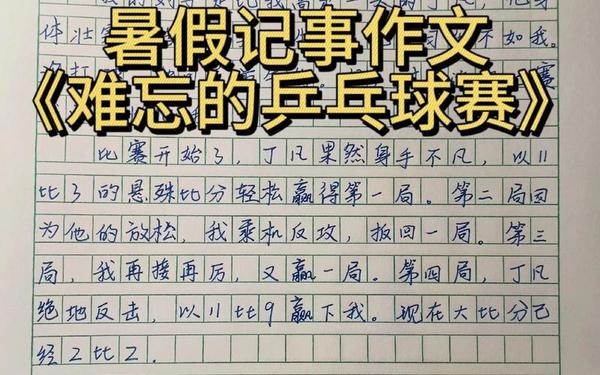 体壮 不如我。
暑假记事作文
赛
《难忘的乒乓球赛》
比赛开始了，丁凡果然身手不凡，以11
比3的悬殊比分轻松赢得第一局。第二局因
为他的放松，我乘机反攻，扳回一局。第三
局，我再接再厉，又赢一局。第四局，丁凡
绝地反击，以11比9赢下我。现在大比分已
经2比2.